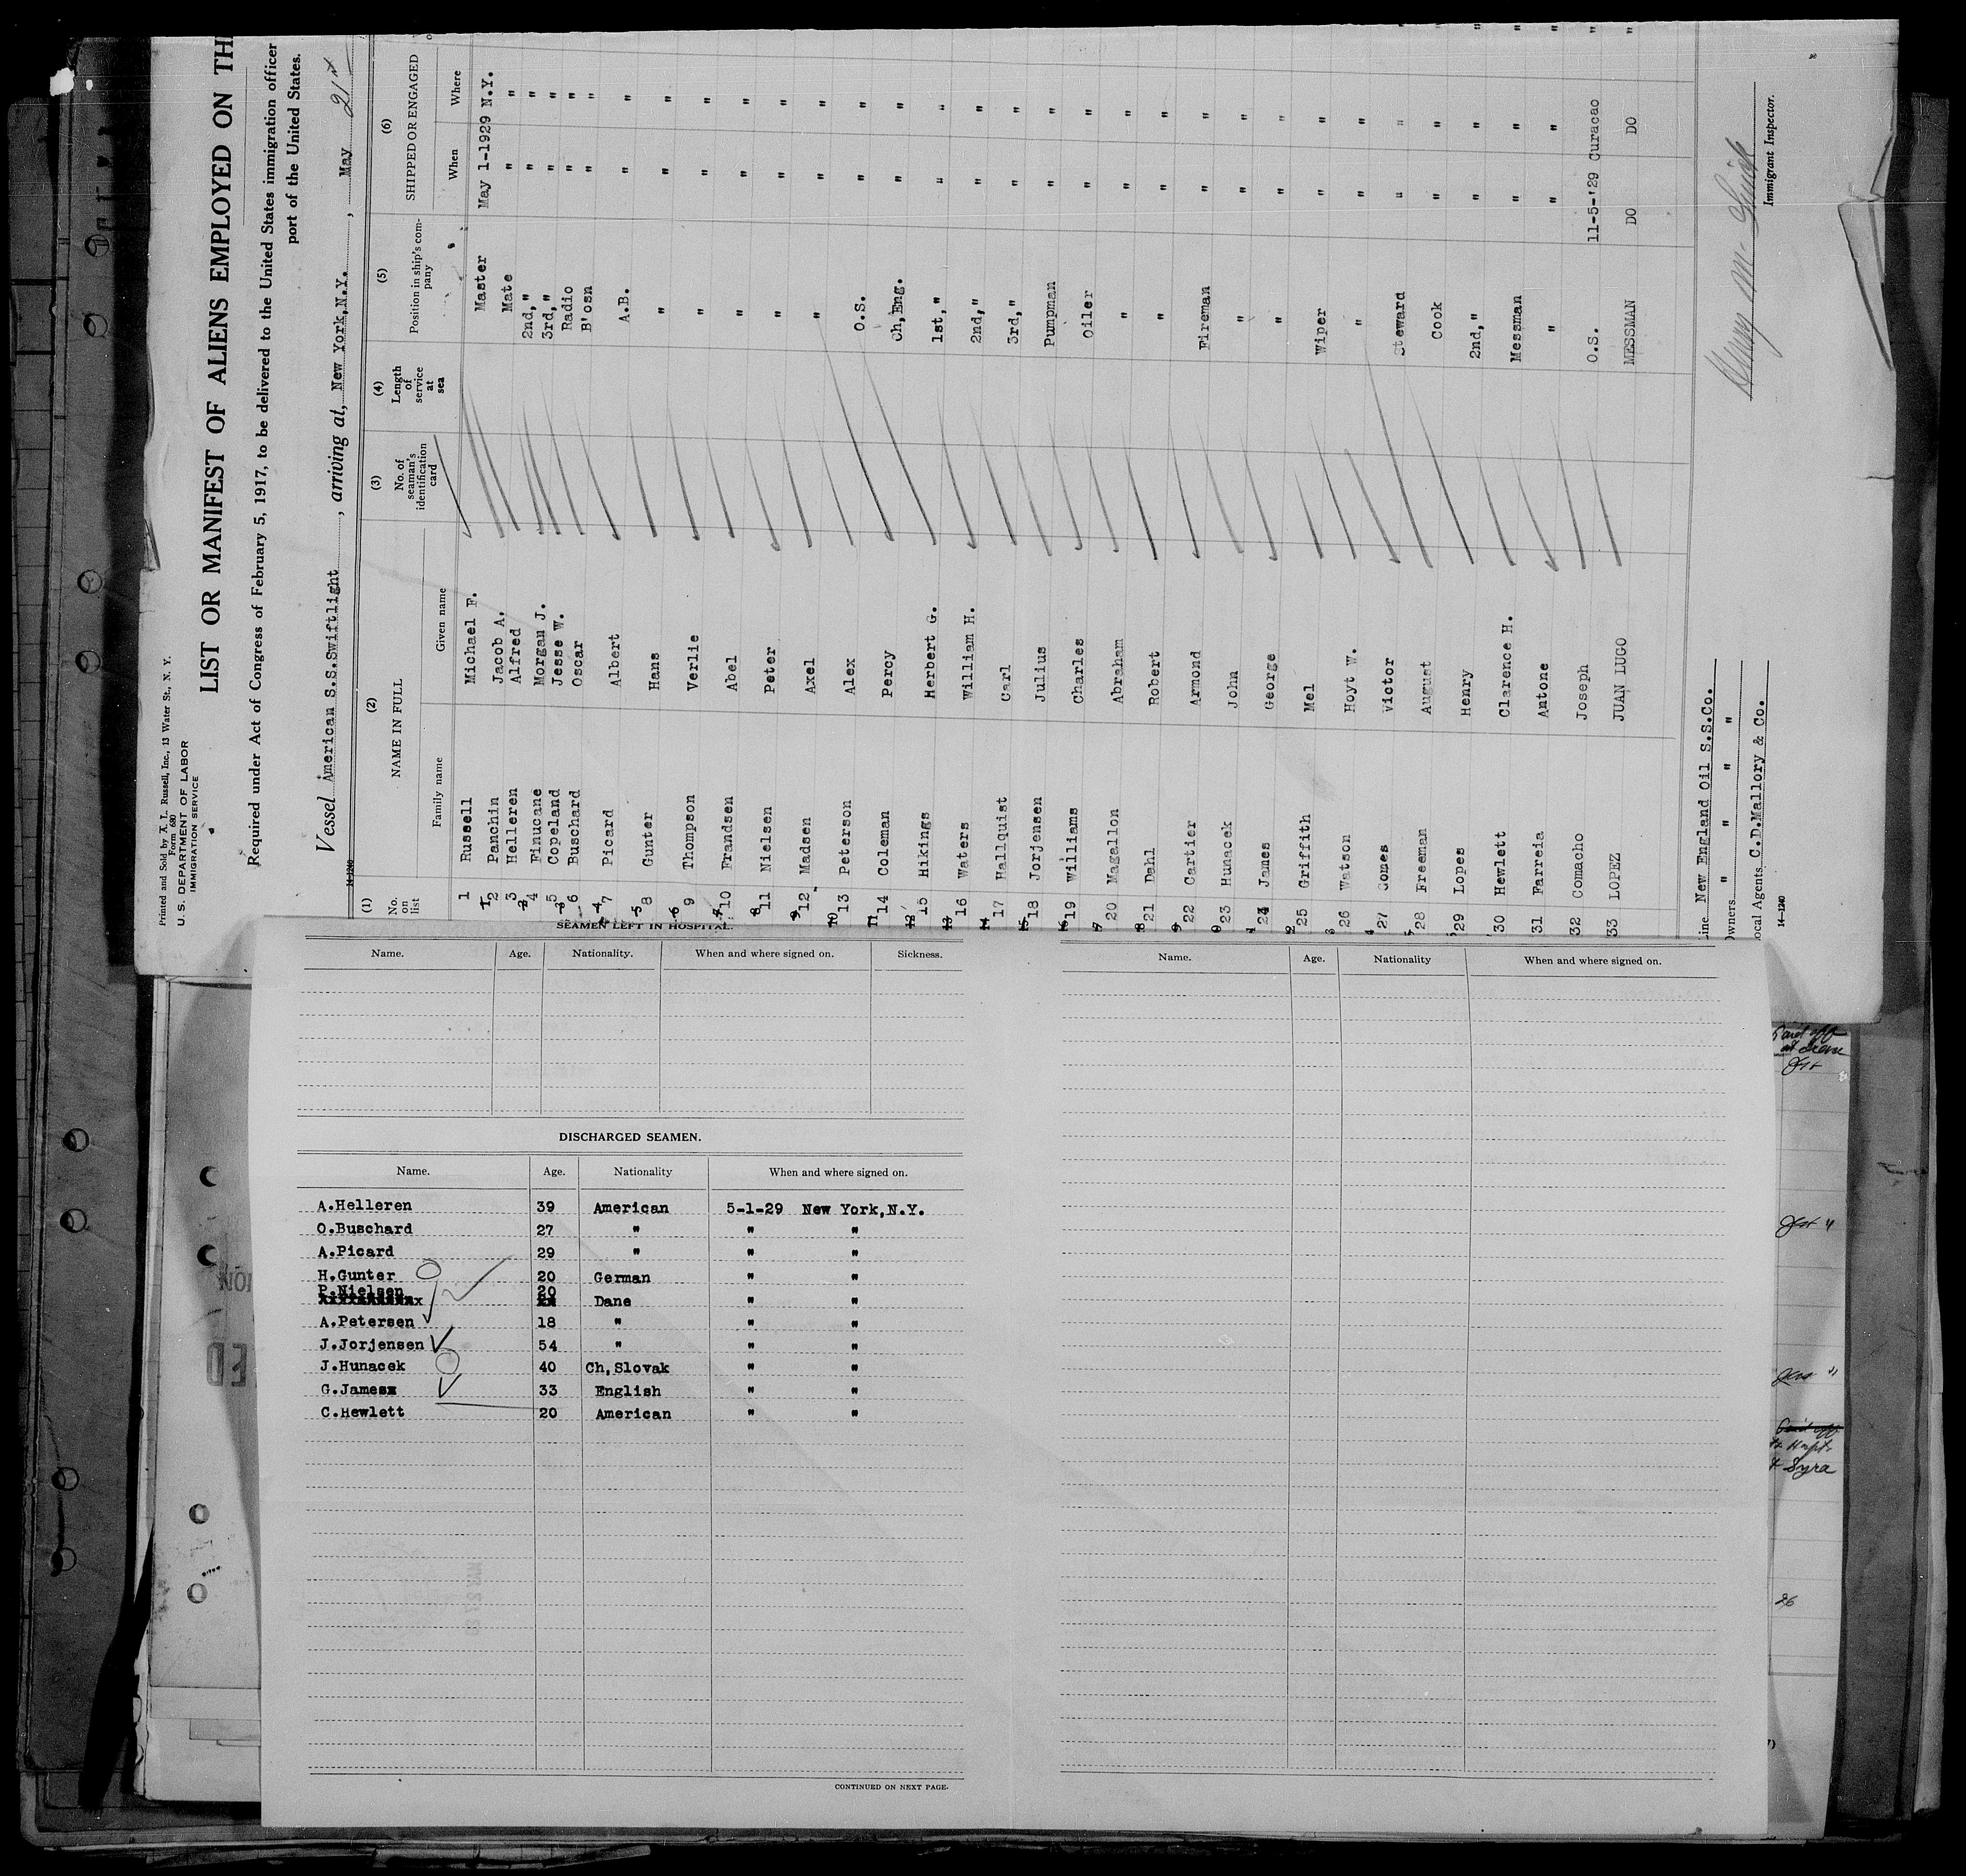 Printed and Sold by A. L. Russell, Inc., 13 Water St., N. Y.
Form 680
U. S. DEPARTMENT OF LABOR
IMMIGRATION SERVICE
LIST OR MANIFEST OF ALIENS EMPLOYED ON TH
Required under Act of Congress of February 5, 1917, to be delivered to the United States immigration officer
port of the United States.
Vessel American S.S.Swiftlight, arriving at, New York,N.Y., May 21st
14-1240
(1) (2) (3) (4) (5) (6)
No. on list NAME IN FULL No. of seaman's identification card Length of service at sea Position in ship's company SHIPPED OR ENGAGED
Family name Given name When Where
1 Russell Michael F. Master May 1-1929 N.Y.
2 Panchin Jacob A. Mate " "
3 Helleren Alfred 2nd," " "
4 Finucane Morgan J. 3rd," " "
5 Copeland Jesse W. Radio " "
6 Buschard Oscar B'osn " "
7 Picard Albert A.B. " "
8 Gunter Hans " " "
9 Thompson Verlie " " "
10 Frandsen Abel " " "
11 Nielsen Peter " " "
12 Madsen Axel " " "
13 Peterson Alex O.S. " "
14 Coleman Percy Ch,Eng. " "
15 Hikings Herbert G. 1st," " "
16 Waters William H. 2nd," " "
17 Hallquist Carl 3rd," " "
18 Jorjensen Julius Pumpman " "
19 Williams Charles Oiler " "
20 Magallon Abraham " " "
21 Dahl Robert " " "
22 Cartier Armond Fireman " "
23 Hunacek John " " "
24 James George " " "
25 Griffith Mel Wiper " "
26 Watson Hoyt W. " " "
27 Gomes Victor Steward " "
28 Freeman August Cook " "
29 Lopes Henry 2nd," " "
30 Hewlett Clarence H. Messman " "
31 Farreia Antone " " "
32 Comacho Joseph O.S. 11-5-'29 Curacao "
33 LOPEZ JUAN LUGO MESSMAN DO DO "
Line New England Oil S.S.Co.
Owners " " " "
Local Agents C.D.Mallory & Co.
14-1240
Immigrant Inspector.
SEAMEN LEFT IN HOSPITAL.
Name. Age. Nationality. When and where signed on. Sickness.
DISCHARGED SEAMEN.
Name. Age. Nationality When and where signed on.
A.Helleren 39 American 5-1-29 New York,N.Y.
O.Buschard 27 " " "
A.Picard 29 " " "
H.Gunter 20 German " "
P.Nielsen 20 Dane " "
A.Petersen 18 " " "
J.Jorjensen 54 " " "
J.Hunacek 40 Ch,Slovak " "
G.James 33 English " "
C.Hewlett 20 American " "
CONTINUED ON NEXT PAGE.
Name. Age. Nationality When and where signed on.
26